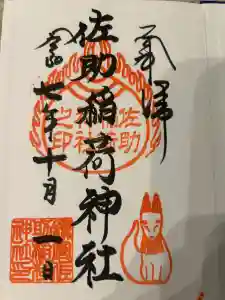 奉拝
佐助稲荷神社
令和七年十月一日
佐助
稲荷社
之印